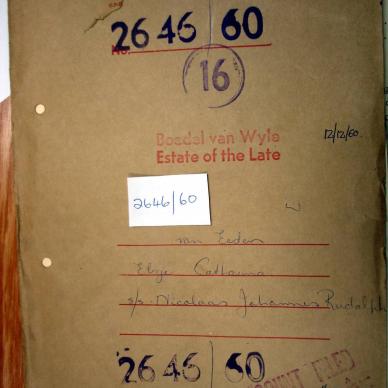 No. 2646/60
16
Boedel van Wyle
Estate of the Late
12/12/60.
2646/60
W
van Eeden
Elsje Catharina
s/s. Nicolaas Johannes Rudolph
2646/60